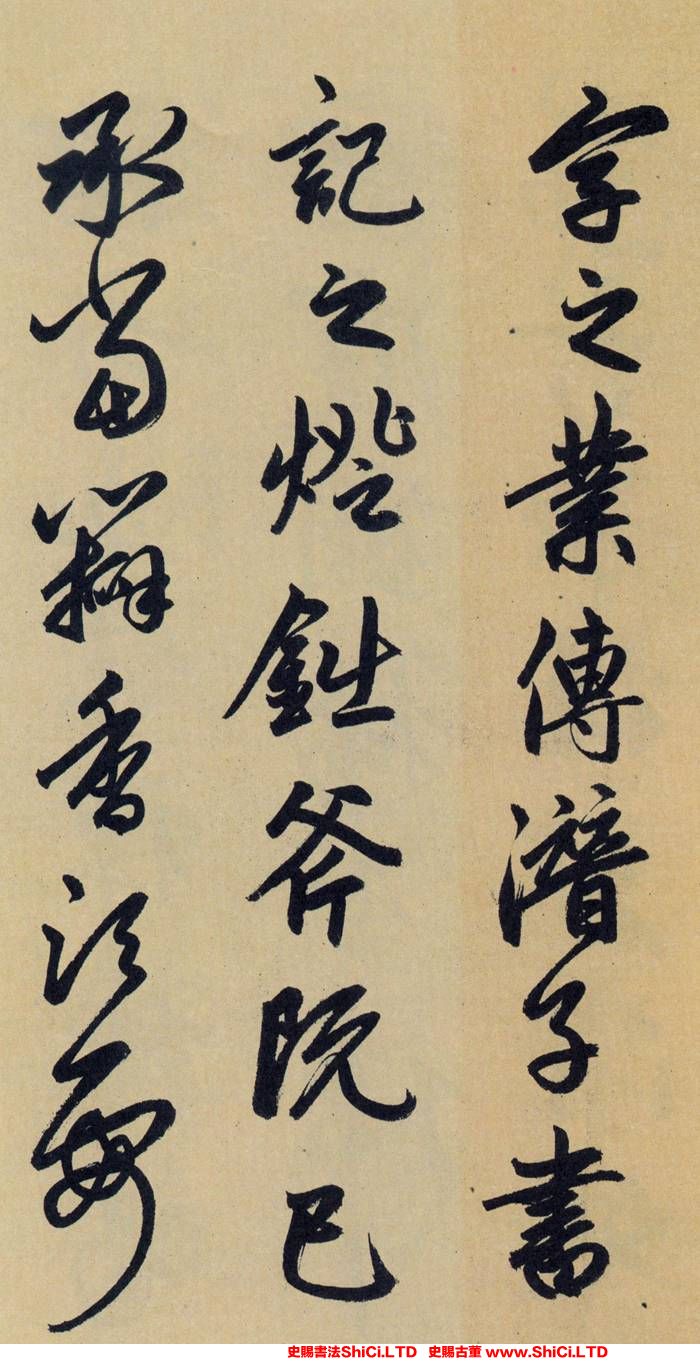 字之業傳潛子書
記之燈鈯斧既已
承當瓣香須要
史賜書法ShiCi.LTD 史賜古董 www.ShiCi.LTD